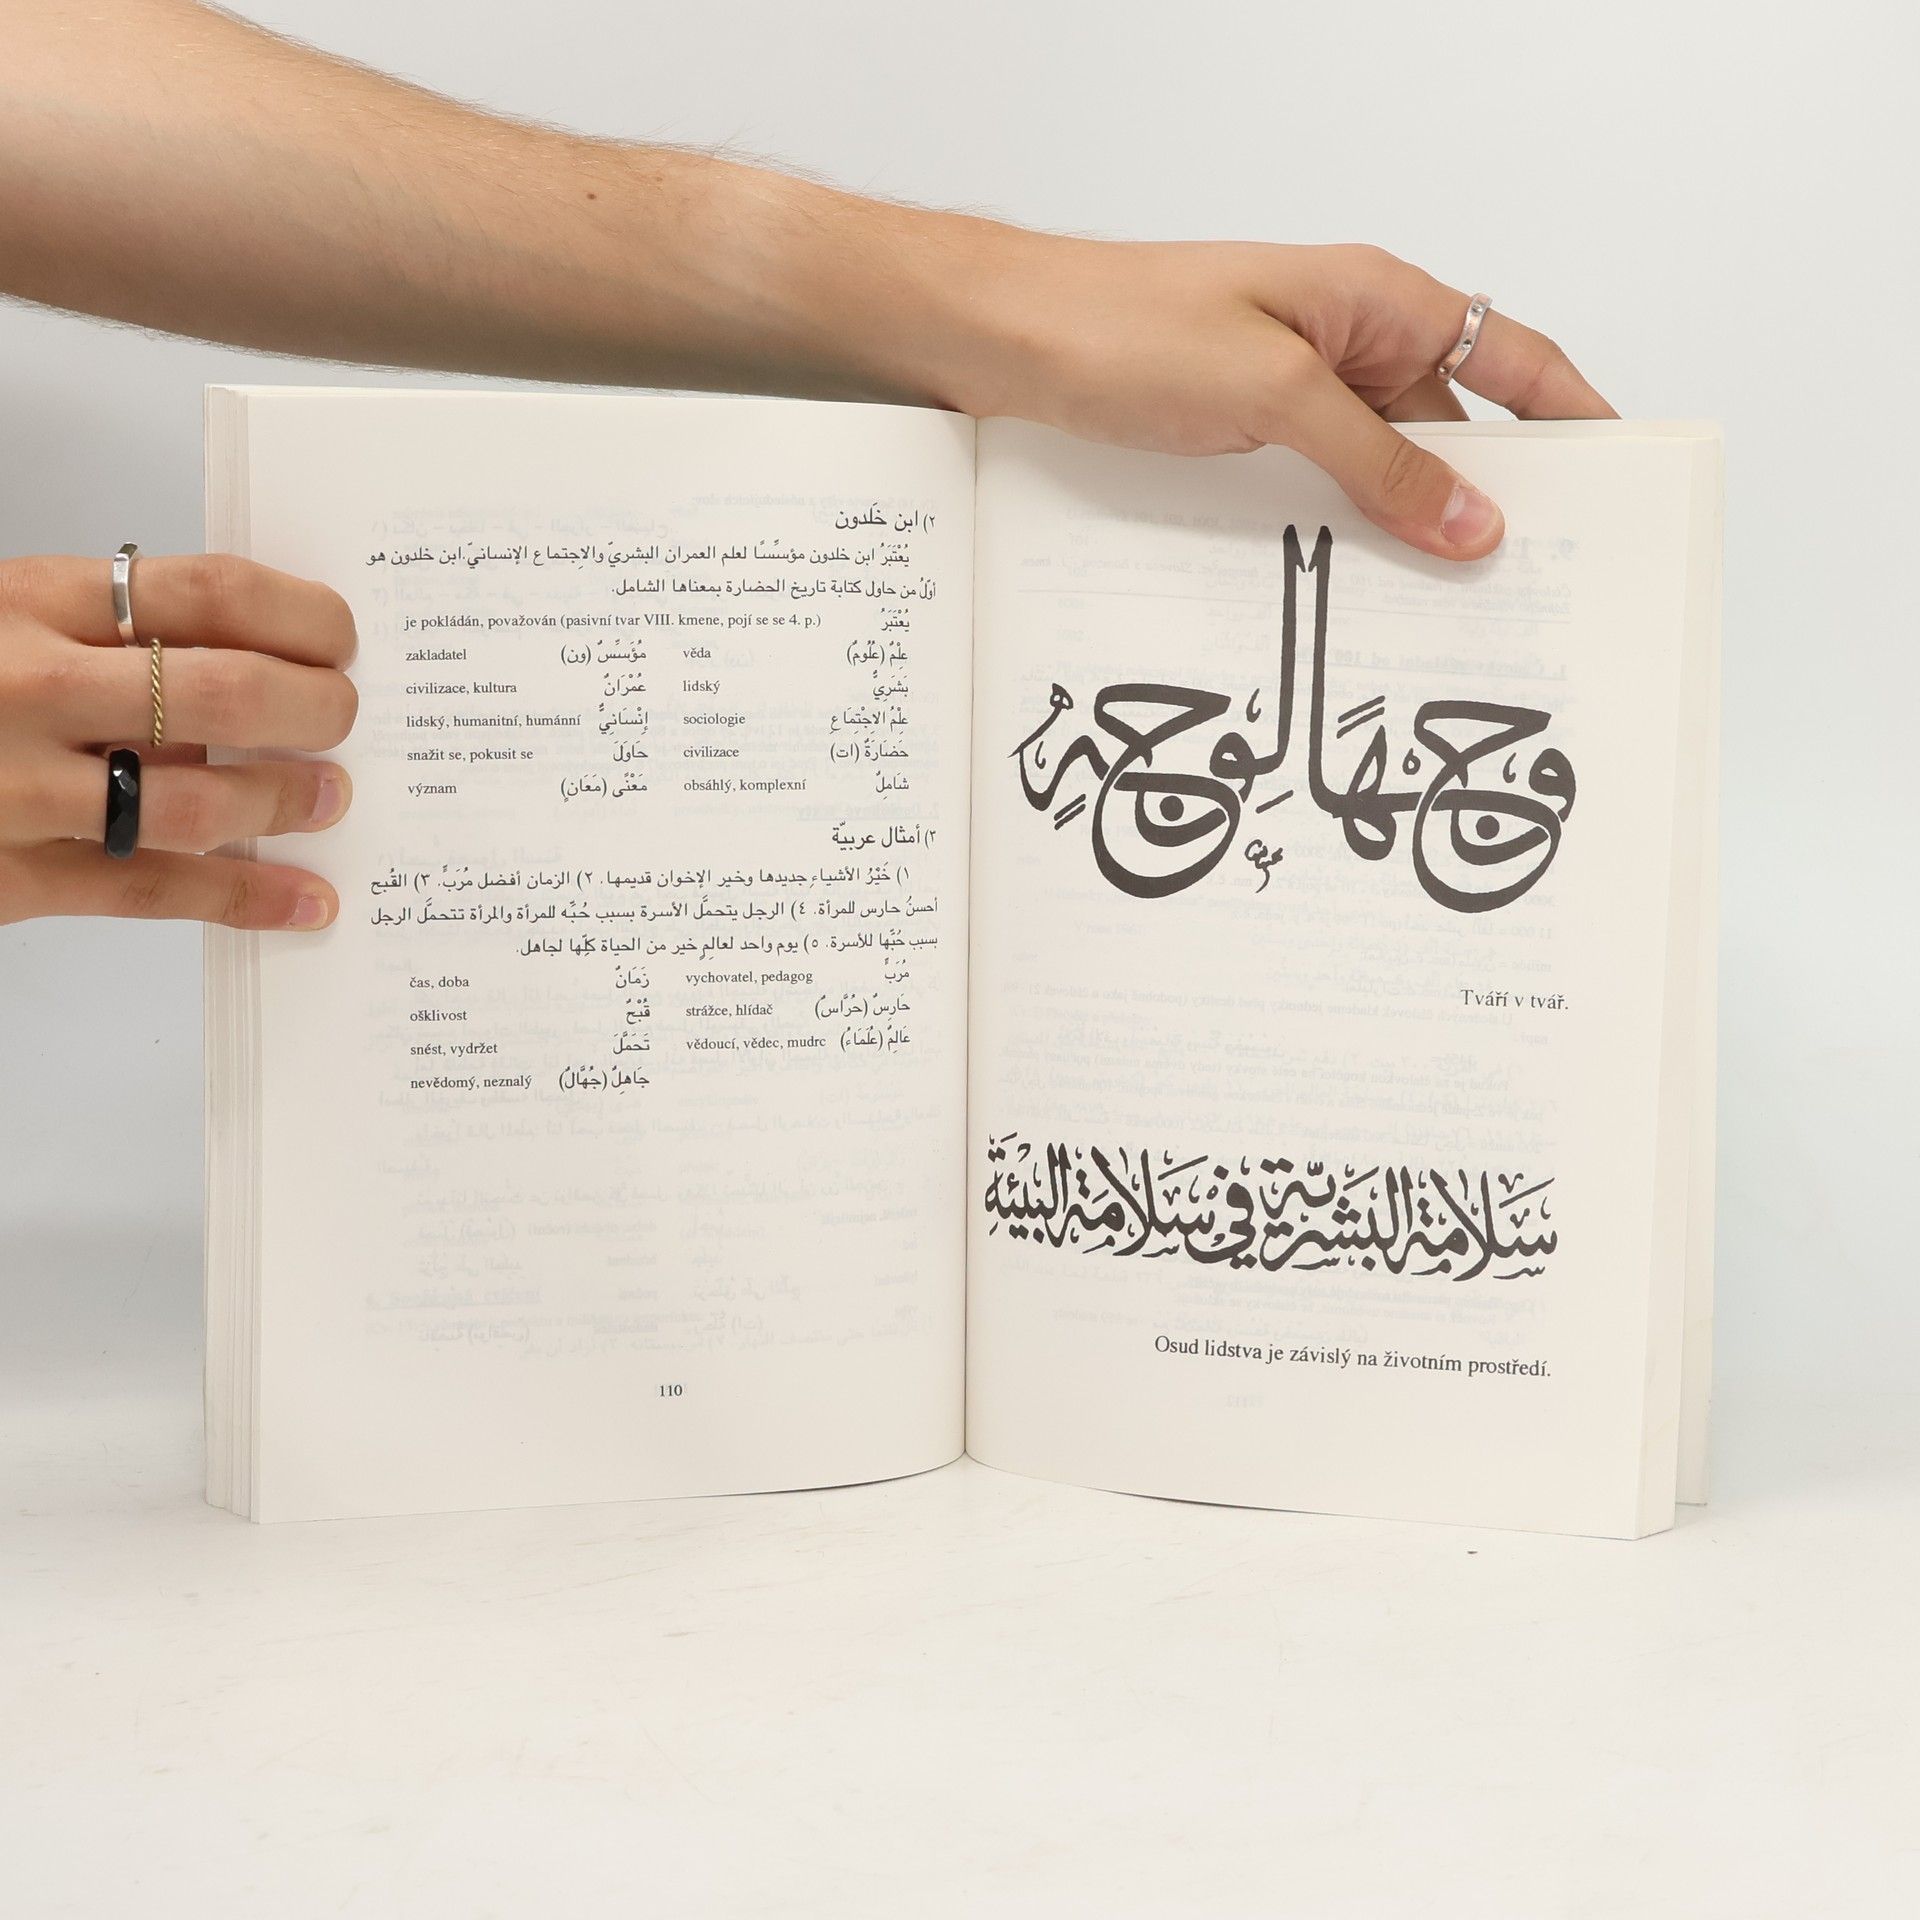 ٢) ابن خَلدون
يُعْتَبَرُ ابن خلدون مؤسِّسًا لعلم العمران البشريّ والإجتماع الإنسانيّ.ابن خلدون هو
أوّلُ من حاول كتابة تاريخ الحضارة بمعناها الشامل.
je pokládán, považován (pasivní tvar VIII. kmene, pojí se se 4. p.) يُعْتَبَرُ
zakladatel مُؤَسِّسٌ (ون) věda عِلْمٌ (عُلُومٌ)
civilizace, kultura عُمْرَانٌ lidský بَشَرِيٌّ
lidský, humanitní, humánní إِنْسَانِيٌّ sociologie عِلْمُ الاِجْتِمَاعِ
snažit se, pokusit se حَاوَلَ civilizace حَضَارَةٌ (ات)
význam مَعْنًى (مَعَانٍ) obsáhlý, komplexní شَامِلٌ
٣) أمثال عربيّة
١) خَيْرُ الأشياءِ جديدها وخير الإخوان قديمها. ٢) الزمان أفضل مُرَبٍّ. ٣) القُبح
أحسنُ حارس للمرأة. ٤) الرجل يتحملَّ الأسرة بسبب حُبِّه للمرأة والمرأة تتحملَّ الرجل
بسبب حُبِّها للأسرة. ٥) يوم واحد لعالِمٍ خير من الحياة كلِّها لجاهل.
čas, doba زَمَانٌ vychovatel, pedagog مُرَبٍّ
ošklivost قُبْحٌ strážce, hlídač حَارِسٌ (حُرَّاسٌ)
snést, vydržet تَحَمَّلَ vědoucí, vědec, mudrc عَالِمٌ (عُلَمَاءُ)
nevědomý, neznalý جَاهِلٌ (جُهَّالٌ)
110
وجهًا لوجهٍ
Tváří v tvář.
سلامة البشرية في سلامة البيئة
Osud lidstva je závislý na životním prostředí.